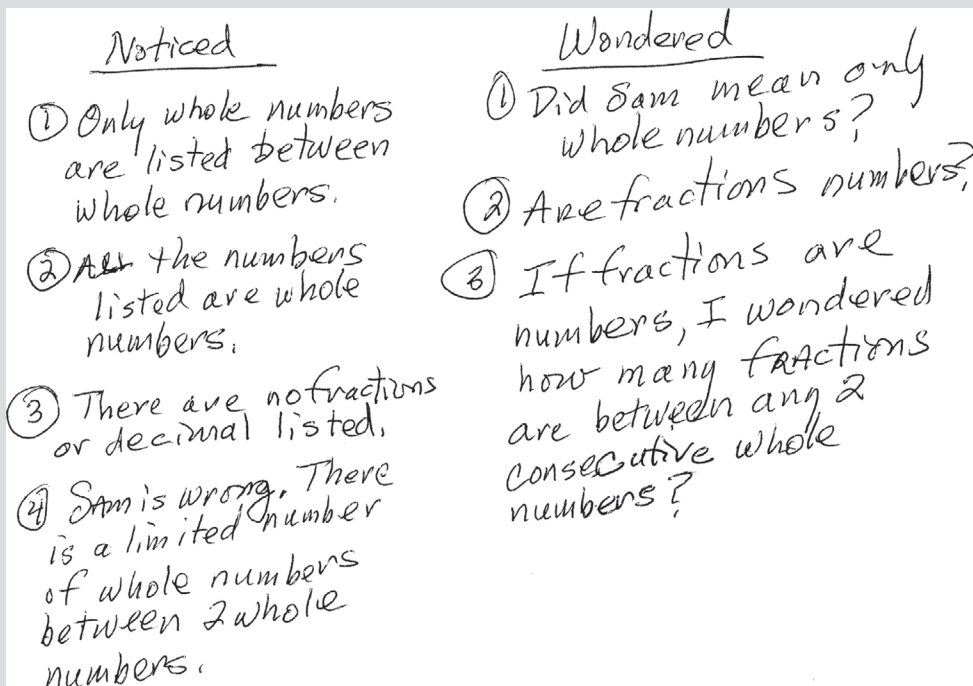 Noticed
① Only whole numbers
are listed between
whole numbers.
② All the numbers
listed are whole
numbers.
③ There are no fractions
or decimal listed.
④ Sam is wrong. There
is a limited number
of whole numbers
between 2 whole
numbers.
Wondered
① Did Sam mean only
whole numbers?
② Are fractions numbers?
③ If fractions are
numbers, I wondered
how many fractions
are between any 2
consecutive whole
numbers?